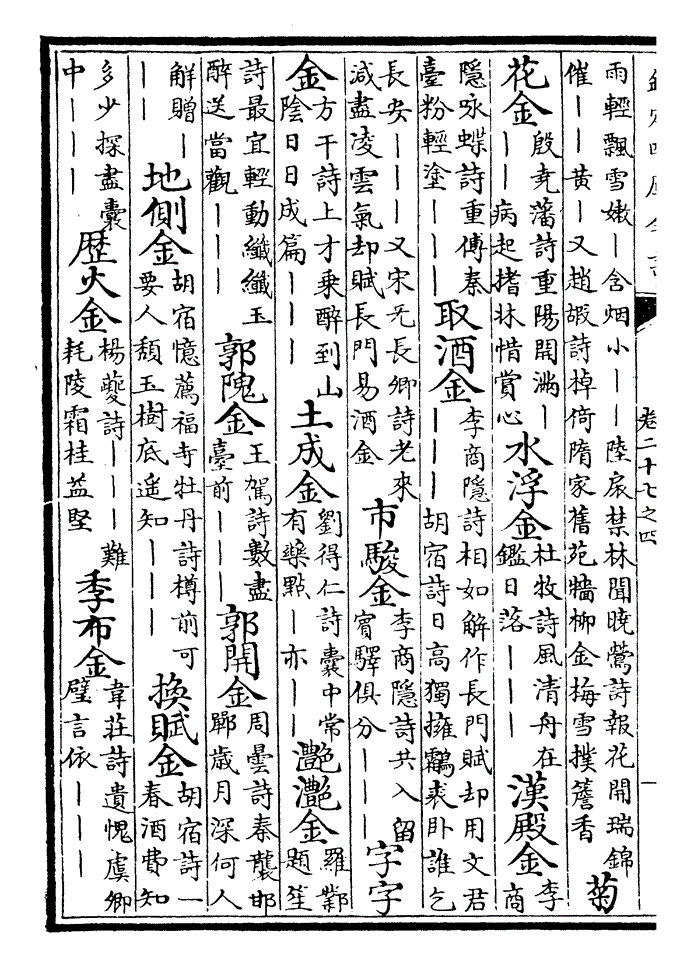 欽定四庫全書
卷二十七之四
雨輕飄雪嫩丨含烟小丨丨陸扆禁林聞曉鶯詩報花開瑞錦
催丨丨黃丨又趙嘏詩棹倚隋家舊苑牆柳金梅雪撲簷香
菊
花金
殷堯藩詩重陽開滿丨
丨丨病起揩牀惜賞心
水浮金
杜牧詩風清舟在
鑑日落丨丨丨
漢殿金
李
商
隱咏蝶詩重傅秦
臺粉輕塗丨丨丨
取酒金
李商隱詩相如解作長門賦却用文君
丨丨丨胡宿詩日高獨擁鷫裘臥誰乞
長安丨丨丨又宋旡長卿詩老來
減盡凌雲氣却賦長門易酒金
市駿金
李商隱詩共入留
賓驛俱分丨丨丨
字字
金
方干詩上才乘醉到山
陰日日成篇丨丨丨
土成金
劉得仁詩囊中常
有藥點丨亦丨丨
灔灔金
羅鄴
題笙
詩最宜輕動纖纖玉
醉送當觀丨丨丨
郭隗金
王駕詩數盡
臺前丨丨丨
郭開金
周曇詩秦襲邯
鄲歲月深何人
解贈丨
丨丨
地側金
胡宿憶薦福寺牡丹詩樽前可
要人頹玉樹底遙知丨丨丨
換賦金
胡宿詩一
春酒費知
多少探盡囊
中丨丨丨
歴火金
楊夔詩丨丨丨難
耗陵霜桂葢堅
季布金
韋莊詩遺愧虞卿
璧言依丨丨丨